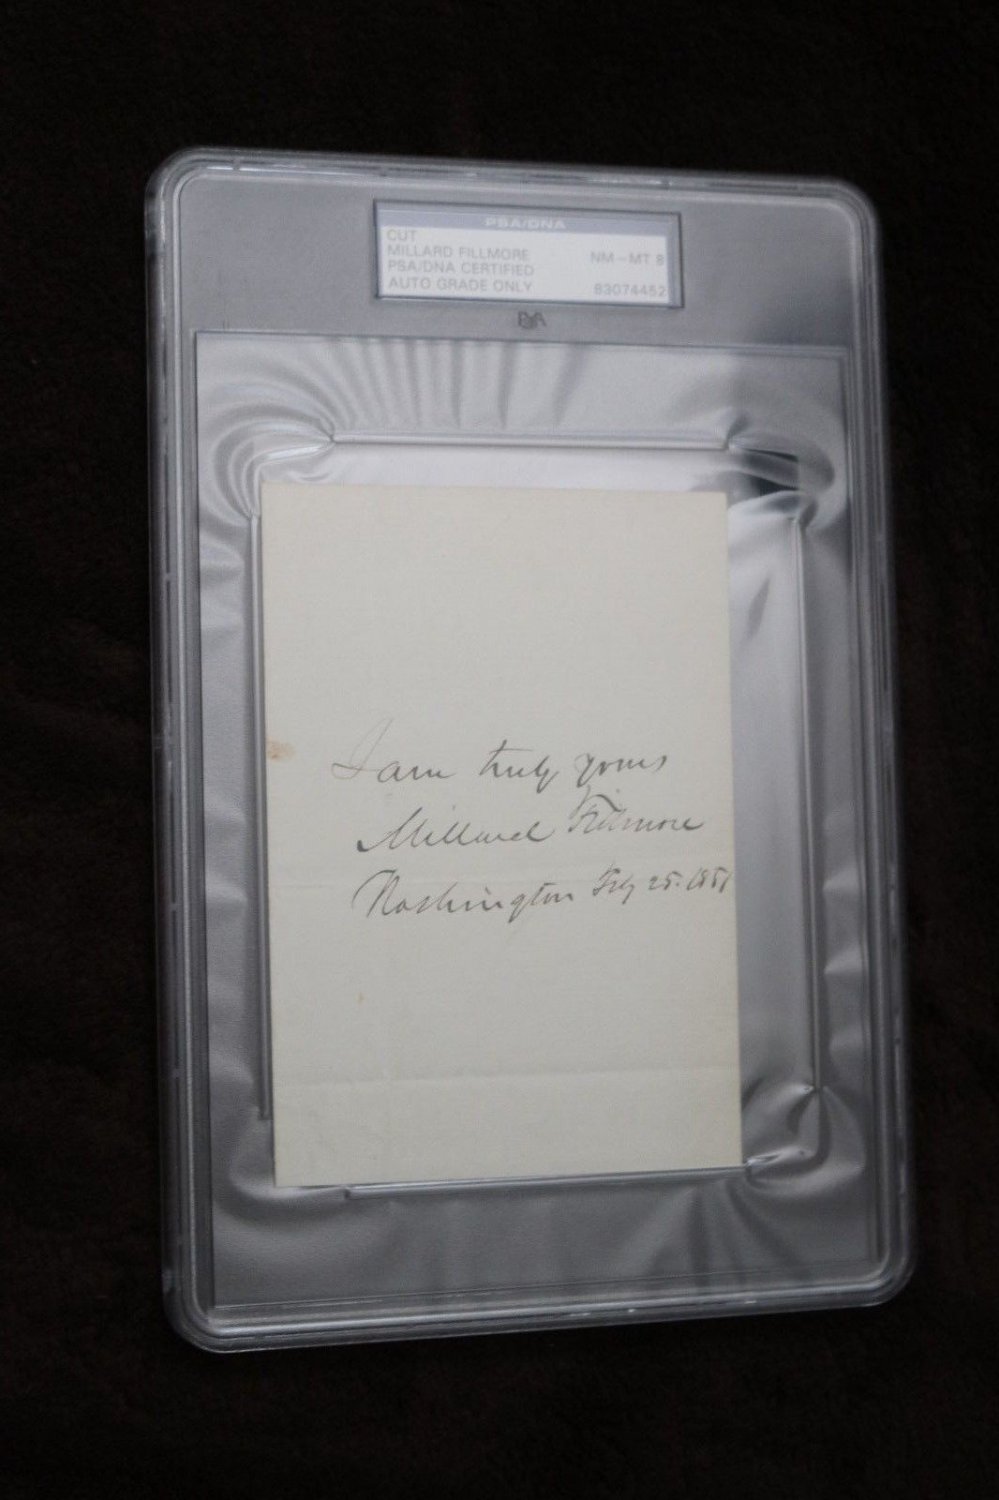 PSA/DNA
CUT
MILLARD FILLMORE NM-MT 8
PSA/DNA CERTIFIED
AUTO GRADE ONLY 83074452
PSA
I am truly yours
Millard Fillmore
Washington Feby 25. 1851